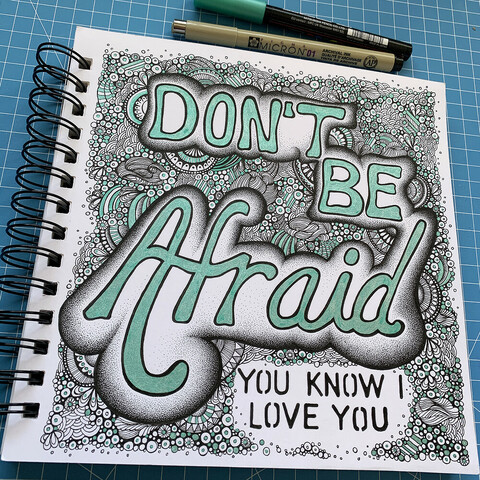 MICRON 01
DON'T
BE
Afraid
YOU KNOW I
LOVE YOU